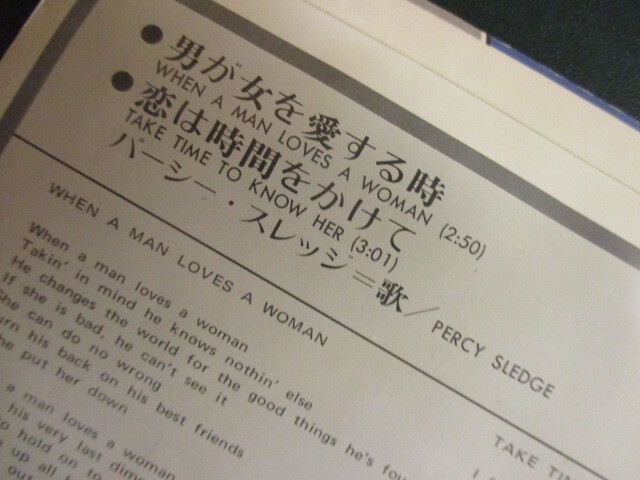 ● 男が女を愛する時
WHEN A MAN LOVES A WOMAN (2:50)
● 恋は時間をかけて
TAKE TIME TO KNOW HER (3:01)
パーシー・スレッジ＝歌／PERCY SLEDGE
WHEN A MAN LOVES A WOMAN
When a man loves a woman
Takin' in mind he knows nothin' else
He changes the world for the good things he's
If she is bad, he can't see it
She can do no wrong
his back on his best friends
put her down
a man loves a woman
his very last
hold on to
up all
out
TAKE